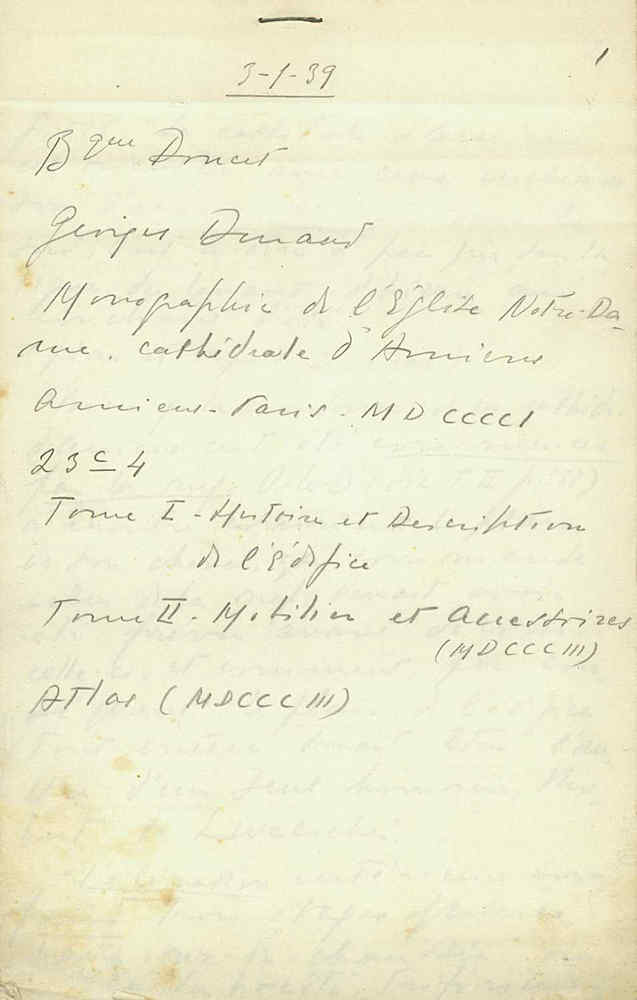 1
3-1-39
Bque Doucet
Georges Durand
Monographie de l'Église Notre-Da-
me. cathédrale d'Amiens
Amiens-Paris-MDCCCCI
23 c 4
Tome I-Histoire et Description
de l'Édifice
Tome II-Mobilier et Accessoires
(MDCCCIII)
Atlas (MDCCCIII)